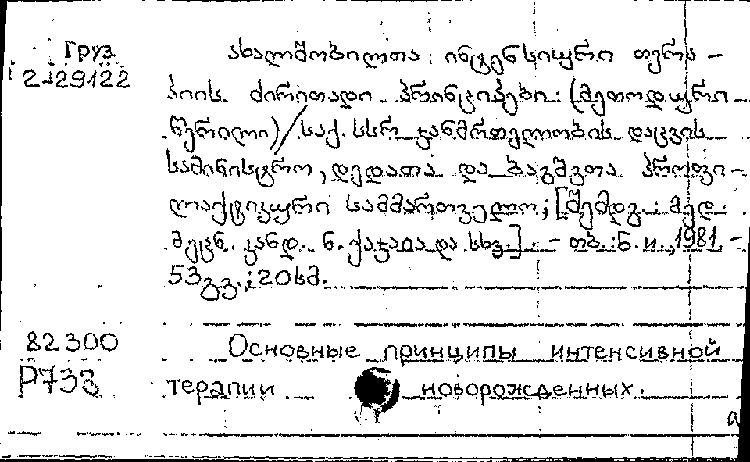 Груз
2-29122
ახალშობილთა ინტენსიური თერა-
პიის ძირითადი პრინციპები: (მეთოდური
წერილი) / საქ. სსრ ჯანმრთელობის დაცვის
სამინისტრო, დედათა და ბავშვთა პროფი-
ლაქტიკური სამმართველო; [შემდგ.: მედ.
მეცნ. კანდ. ნ. ქაჯაია და სხვ.] - თბ.: ნ. ი., 1981. -
53 გვ.; 20 სმ.
82300
Р733
Основные принципы интенсивной
терапии новорожденных.